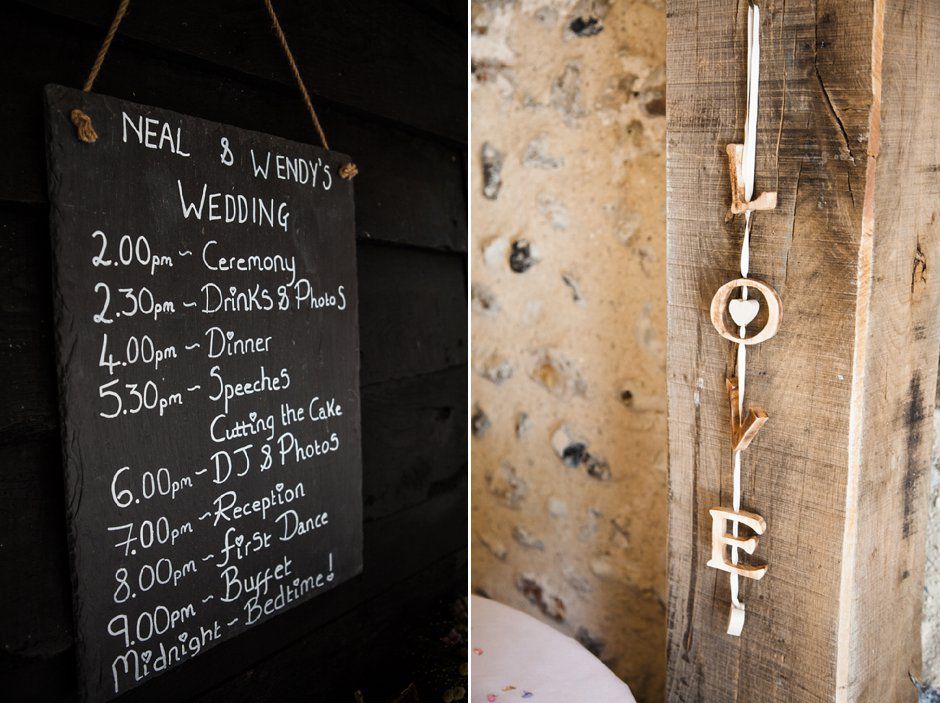 NEAL & WENDY'S
WEDDING
2.00pm ~ Ceremony
2.30pm ~ Drinks & Photos
4.00pm ~ Dinner
5.30pm ~ Speeches
Cutting the Cake
6.00pm ~ DJ & Photos
7.00pm ~ Reception
8.00pm ~ first Dance
9.00pm ~ Buffet
Midnight - Bedtime!
L
O
V
E